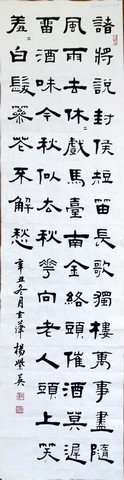 諸將說封侯短笛長歌獨樓萬事盡隨
風雨去休〻戲馬臺南金絡頭催酒莫遲
畱酒味今秋似去秋華向老人頭上笑
羞〻白髮簪花不解愁
辛丑冬月 楊英